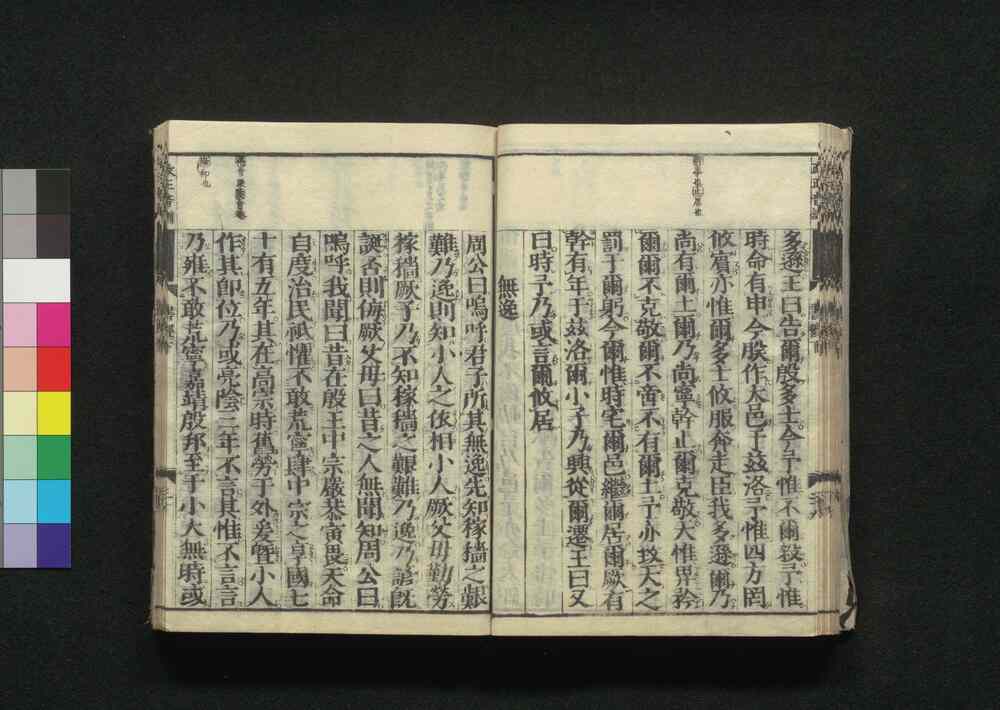 多遜王曰告爾殷多士今予惟不爾殺予惟
時命有申今朕作大邑于茲洛予惟四方罔
攸賓亦惟爾多士攸服奔走臣我多遜爾乃
尚有爾土爾乃尚寧幹止爾克敬天惟畀矜
爾爾不克敬爾不啻不有爾土予亦致天之
罰于爾躬今爾惟時宅爾邑繼爾居爾厥有
幹有年于茲洛爾小子乃興從爾遷王曰又
曰時予乃或言爾攸居
無逸
周公曰嗚呼君子所其無逸先知稼穡之艱
難乃逸則知小人之依相小人厥父母勤勞
稼穡厥子乃不知稼穡之艱難乃逸乃諺既
誕否則侮厥父母曰昔之人無聞知周公曰
嗚呼我聞曰昔在殷王中宗嚴恭寅畏天命
自度治民祗懼不敢荒寧肆中宗之享國七
十有五年其在高宗時舊勞于外爰曁小人
作其卽位乃或亮陰三年不言其惟不言言
乃雍不敢荒寧嘉靖殷邦至于小大無時或